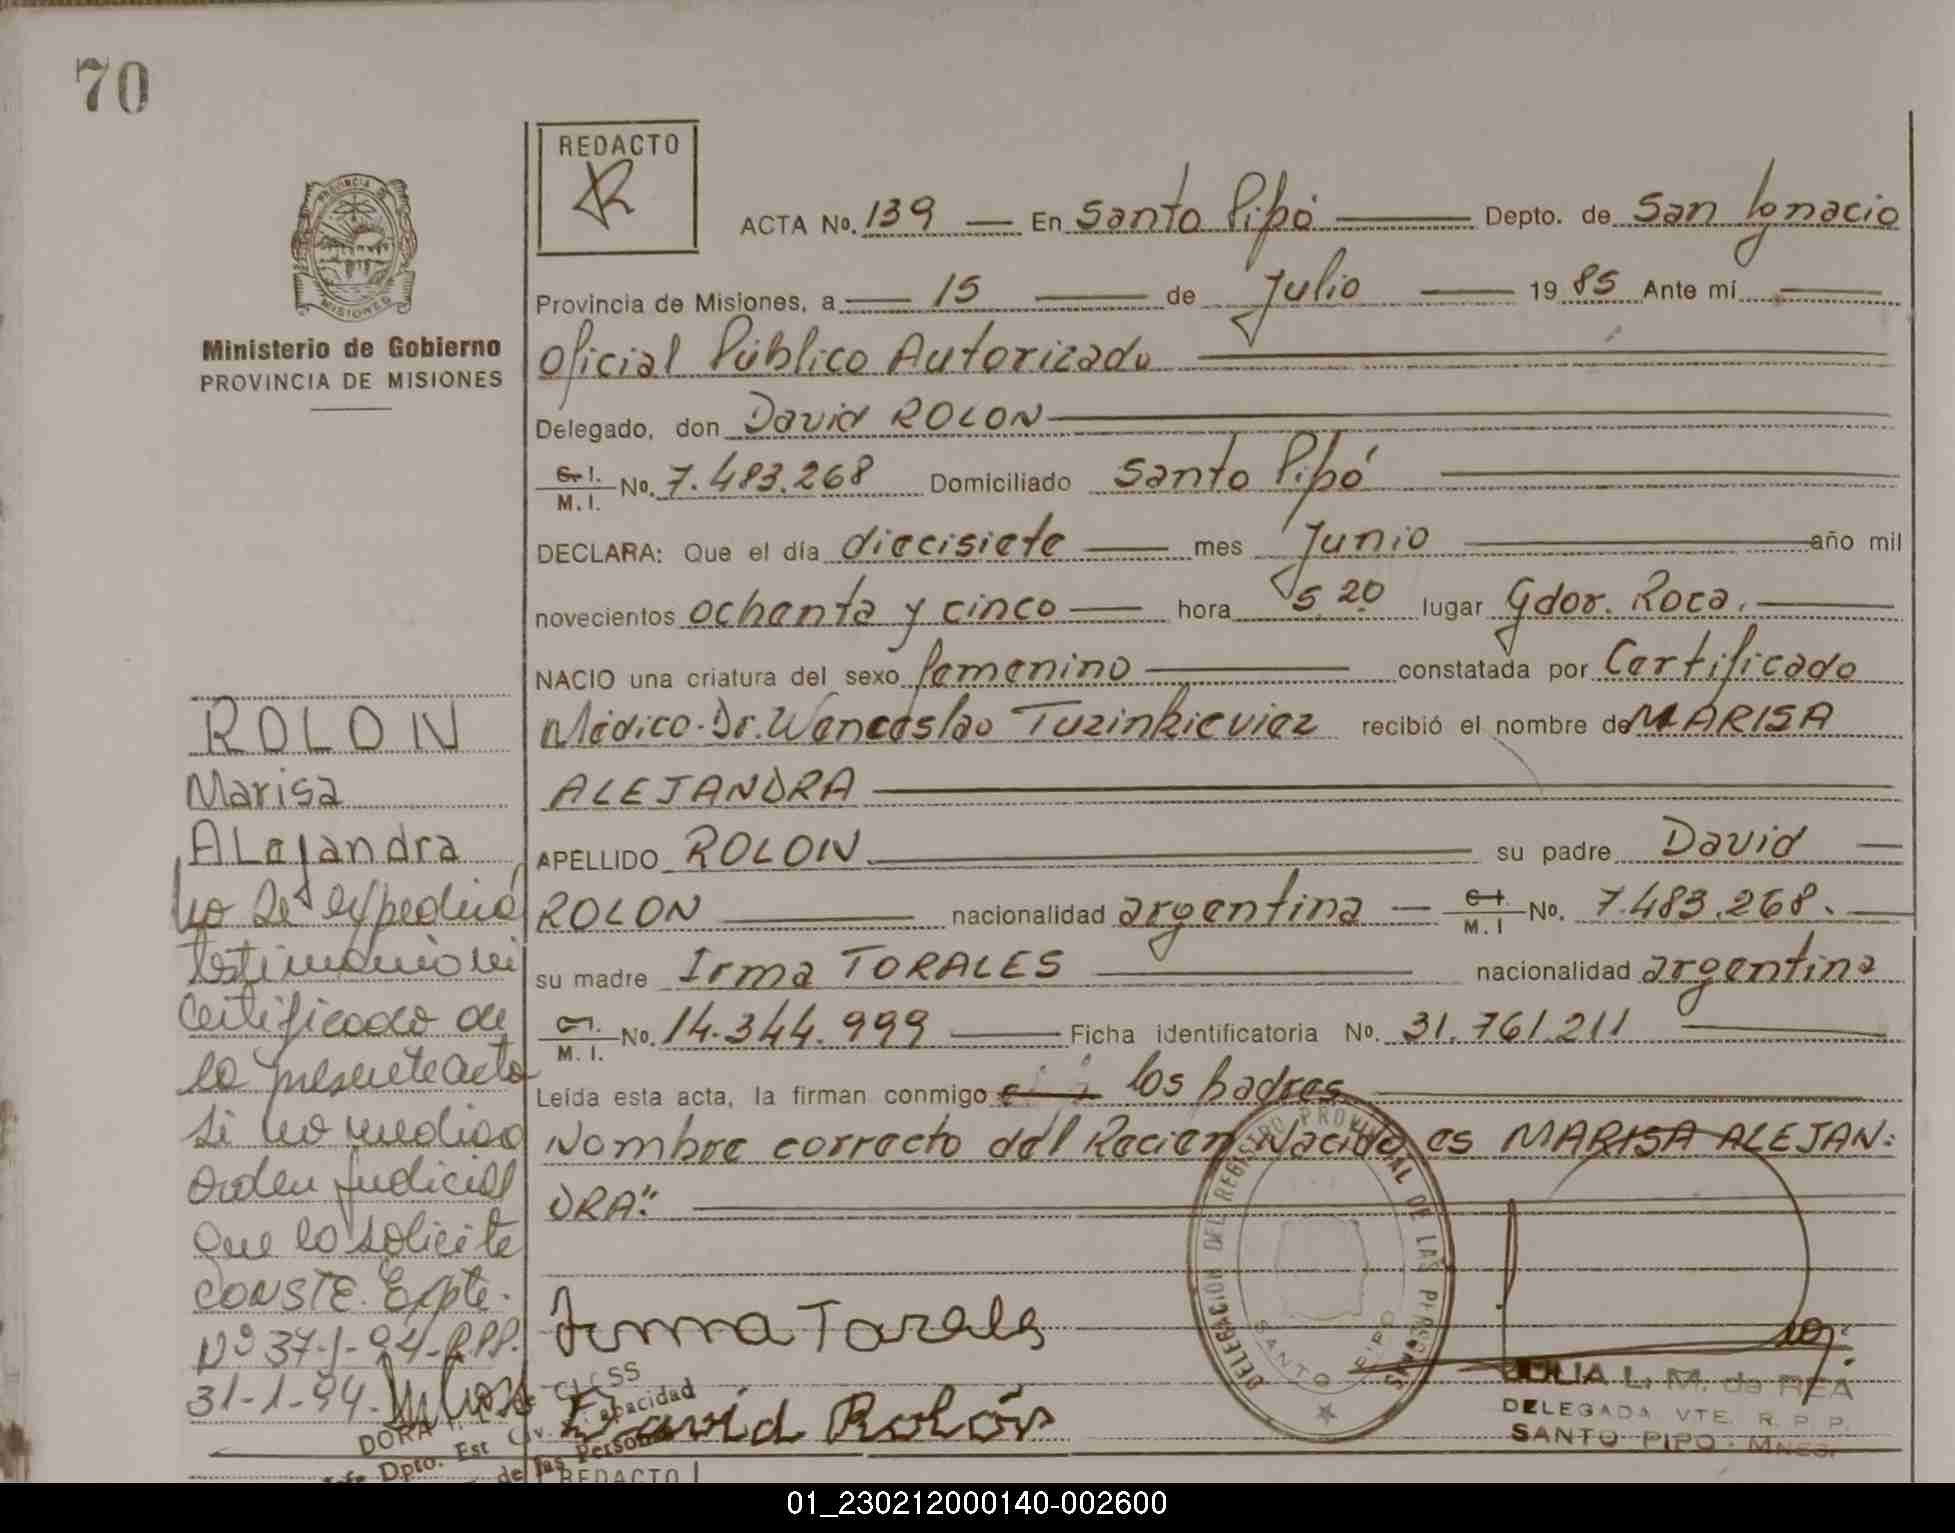 70
REDACTO
ACTA No. 139 En Santo Pipó Depto. de San Ignacio
Provincia de Misiones, a 15 de Julio 1985 Ante mí
Oficial Público Autorizado
Delegado, don David ROLON
C. I. M. I. No. 7.483.268 Domiciliado Santo Pipó
DECLARA: Que el día diecisiete mes Junio año mil
novecientos ochenta y cinco hora 5.20 lugar Gdor. Roca.
NACIO una criatura del sexo femenino constatada por Certificado
Médico. Dr. Wenceslao Tuzinkieviez recibió el nombre de MARISA
ALEJANDRA
APELLIDO ROLON su padre David
ROLON nacionalidad argentina M. I No. 7.483.268.
su madre Irma TORALES nacionalidad argentina
M. I. No. 14.344.999 Ficha identificatoria No. 31.761.211
Leída esta acta, la firman conmigo los padres
Nombre correcto del Recien Nacido es MARISA ALEJAN:
DRA"
Irma Torales
David Rolón
PROVINCIA DE
MISIONES
Ministerio de Gobierno
PROVINCIA DE MISIONES
ROLON
Marisa
ALejandra
No se expedirá
testimonio ni
certificado de
la presente acta
si no mediara
orden judicial
que lo solicite
CONSTE. Expte.
Nº 37-J-94-RPP.
31-1-94.
DORA
Jefe Dpto. Est Civ. Capacidad
de las Personas
DELEGACION DEL REGISTRO PROVINCIAL DE LAS PERSONAS
SANTO PIPO
JULIA L. M. de REA
DELEGADA VTE. R. P. P.
SANTO PIPO - MNES.
REDACTO
01_230212000140-002600